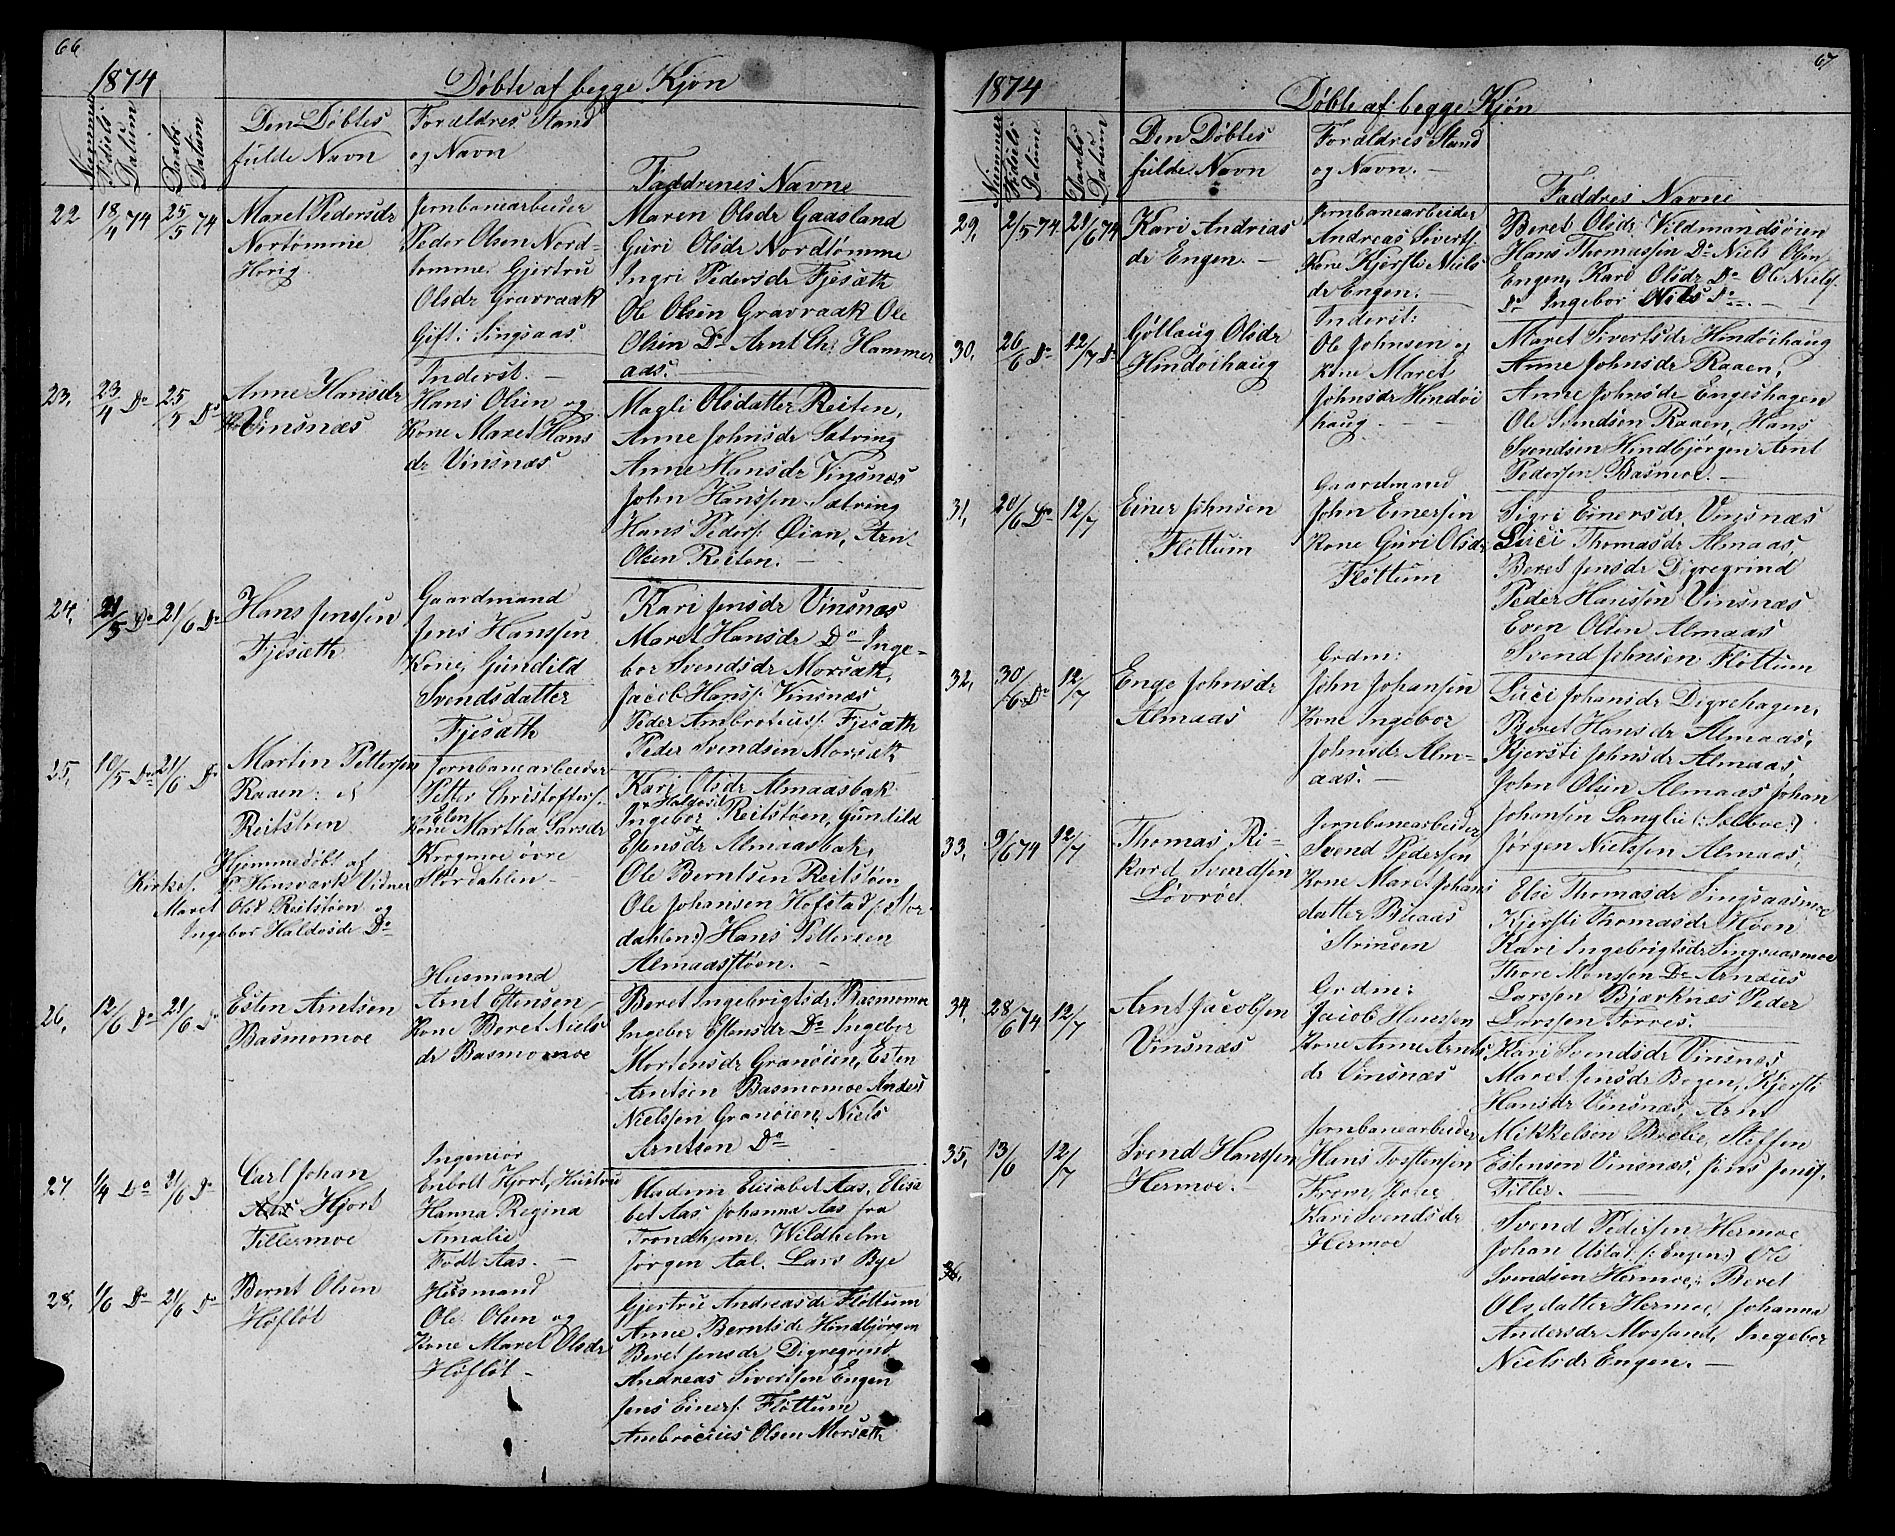 66
1874
Døbte af begge Kjøn
Nummer
Fødsels Datum
Daabs Datum
Den Døbtes
fulde Navn
Forældres Stand
og Navn
Faddrenes Navne
22
18/4 74
25/5 74
Maret Pedersdr
Nortømme
Horig
Jernbanearbeider
Peder Olsen Nord-
tømme. Gjertru
Olsdr Gravraak
Gift i Singsaas
Maren Olsdr Gaasland
Guri Olsdr Nordtømme
Ingri Pedersdr Fjesæth
Ole Olsen Gravraak Ole
Olsen Do Arnt Chr Hammer
aas.
23,
23/4 Do
25/5 Do
Anne Hansdr
Vinsnæs
Inderst. -
Hans Olsen og
Kone Maret Hans
dr Vinsnæs
Magli Olsdatter Reiten,
Anne Johnsdr Sætring
Anne Hansdr Vinsnæs
John Hanssen Sætring
Hans Peders. Øian, Arn
Olsen Reiten. -
24,
21/5 Do
21/6 Do
Hans Jenssen
Fjesæth
Gaardmand
Jens Hanssen
Kone, Gunild
Svendsdatter
Fjesæth
Kari Jensdr Vinsnæs
Maret Hansdr Do Inge-
bor Svendsdr Morsæth,
Jacob Hans. Vinsnæs
Peder Ambrocius. Fjesæth
Peder Svendsen Morsæth
25,
10/5 Do
21/6 Do
Martin Pettersen
Raaen: et
Reitstøen
Hjemmedøbt af
Kirkes. P. Hinsværk Vidner
Maret Olsd Reitstøen og
Ingebor Haldosdr Do
Jernbanearbeider
Petter Christoffers.
Kone Martha Larsdr
Krogmoe øvre
Størdahlen -
Kari Olsdr Almaasbak
Haldosd
Ingebor Reitstøen, Gunild
Estensdr Almaasbak,
Ole Berntsen Reitstøen
Ole Johansen Hofstad (: Stor
dahlen:) Hans Pettersen
Almaasstøen. -
26,
12/6 Do
21/6 Do
Esten Arntsen
Basmomoe
Husmand
Arnt Estensen
Kone Beret Niels
dr Basmomoe
Beret Ingebrigtsdr Basmomoe
Ingebor Estensdr Do Ingebor
Mortensdr Granøien, Esten
Arntsen Basmomoe Anders
Nielssen Granøien, Niels
Arntsen Do
27,
1/4 Do
21/6 Do
Carl Johan
Aas Hjort
Tillermoe
Ingeniør
Enbolt Hjort, Hustru
Hanna Regina
Amalie
Født Aas. -
Madam Elisabet Aas, Elisa
bet Aas, Johanna Aas fra
Trondhjem, Wildhelm
Jørgen Aal. Lars Bye
28,
1/6 Do
21/6 Do
Bernt Olsen
Høfløt
Husmand
Ole Olsen og
Kone Maret Olsdr
Høfløt -
Gjertru Andreasdr Fløttum
Anne Berntsdr Hindbjørgen
Beret Jensdr Digregrind
Andreas Sivertsen Engen
Jens Einers. Fløttum
Ambrocius Olsen Morsæth
67
1874
Døbte af begge Kjøn
Nummer
Fødsels Datum
Daabs Datum
Den Døbtes
fulde Navn
Forældres Stand
og Navn. -
Faddres Navne
29,
2/5 74
21/6 74
Kari Andrias
dr Engen. -
Jernbanearbeider
Andreas Siverts.
Kone Kjersti Niels
dr Engen.
Beret Olsdr Vildmandsøien
Hans Thomassen Do Niels Olsen
Engen, Kari Olsdr Do Ole Niels.
Do Ingebor Nils Do. -
30,
26/6 Do
12/7 Do
Gøllaug Olsdr
Hindøihaug
Inderst:
Ole Johnsen og
Kone Maret
Johnsdr Hindøi
haug. - -
Maret Sivertsdr Hindøihaug
Anne Johnsdr Raaen,
Anne Johnsdr Engeshagen
Ole Svendsen Raaen, Hans
Svendsen Hindbjørgen Arnt
Pedersen Basmoe. -
31,
20/6 Do
12/7
Einer Johnsen
Fløttum
Gaardmand
John Einersen
Kone Guri Olsdr
Fløttum
Sigri Einersdr Vinsnæs
Luci Thomasdr Almaas,
Beret Jensdr Digregrind
Peder Hanssen Vinsnæs
Even Olsen Almaas
Svend Johnsen Fløttum
32,
30/6 Do
12/7
Enge Johnsdr
Almaas
Grdm:
John Johansen
Kone Ingebor
Johnsdr Alm-
aas. -
Luci Johansdr Digrehagen,
Beret Hansdr Almaas,
Kjersti Johnsdr Almaas,
John Olsen Almaas Johan
Johansen Langlie (: Sælboe:)
Jørgen Nielssen Almaas,
33,
9/6 74
12/7
Thomas Ri-
kard Svendsen
Løvrød
Jernbanearbeider
Svend Pedersen
Kone Maret Johans
datter Buaas
Strinden
Else Thomasdr Singsaasmoe
Kjersti Thomasdr Høen
Kari Ingebrigtsdr Singsaasmoe
Thore Monssen Do Arnæus
Larssen Bjærknæs Peder
Larssen Forves.
34,
28/6 74
12/7
Arnt Jacobsen
Vinsnæs
Grdm:
Jacob Hanssen
Kone Anne Arnts
dr Vinsnæs
Kari Svendsdr Vinsnæs,
Maret Jensdr Bogen, Kjersti
Hansdr Vinsnæs, Arnt
Mikkelsen Brelie, Steffen
Estensen Vinsnæs, Jens Jens.
Tiller. -
35,
13/6
12/7
Svend Hanssen
Hermoe.
Jernbanearbeider
Hans Torstensen
From, Kone
Kari Svendsdr
Hermoe
Svend Pedersen Hermoe
Johan Ustad (: Engen:) Ole
Svendsen Hermoe, Beret
Olsdatter Hermoe, Johanna
Andersdr Mossand, Ingebor
Nielsdr Engen. -
36,